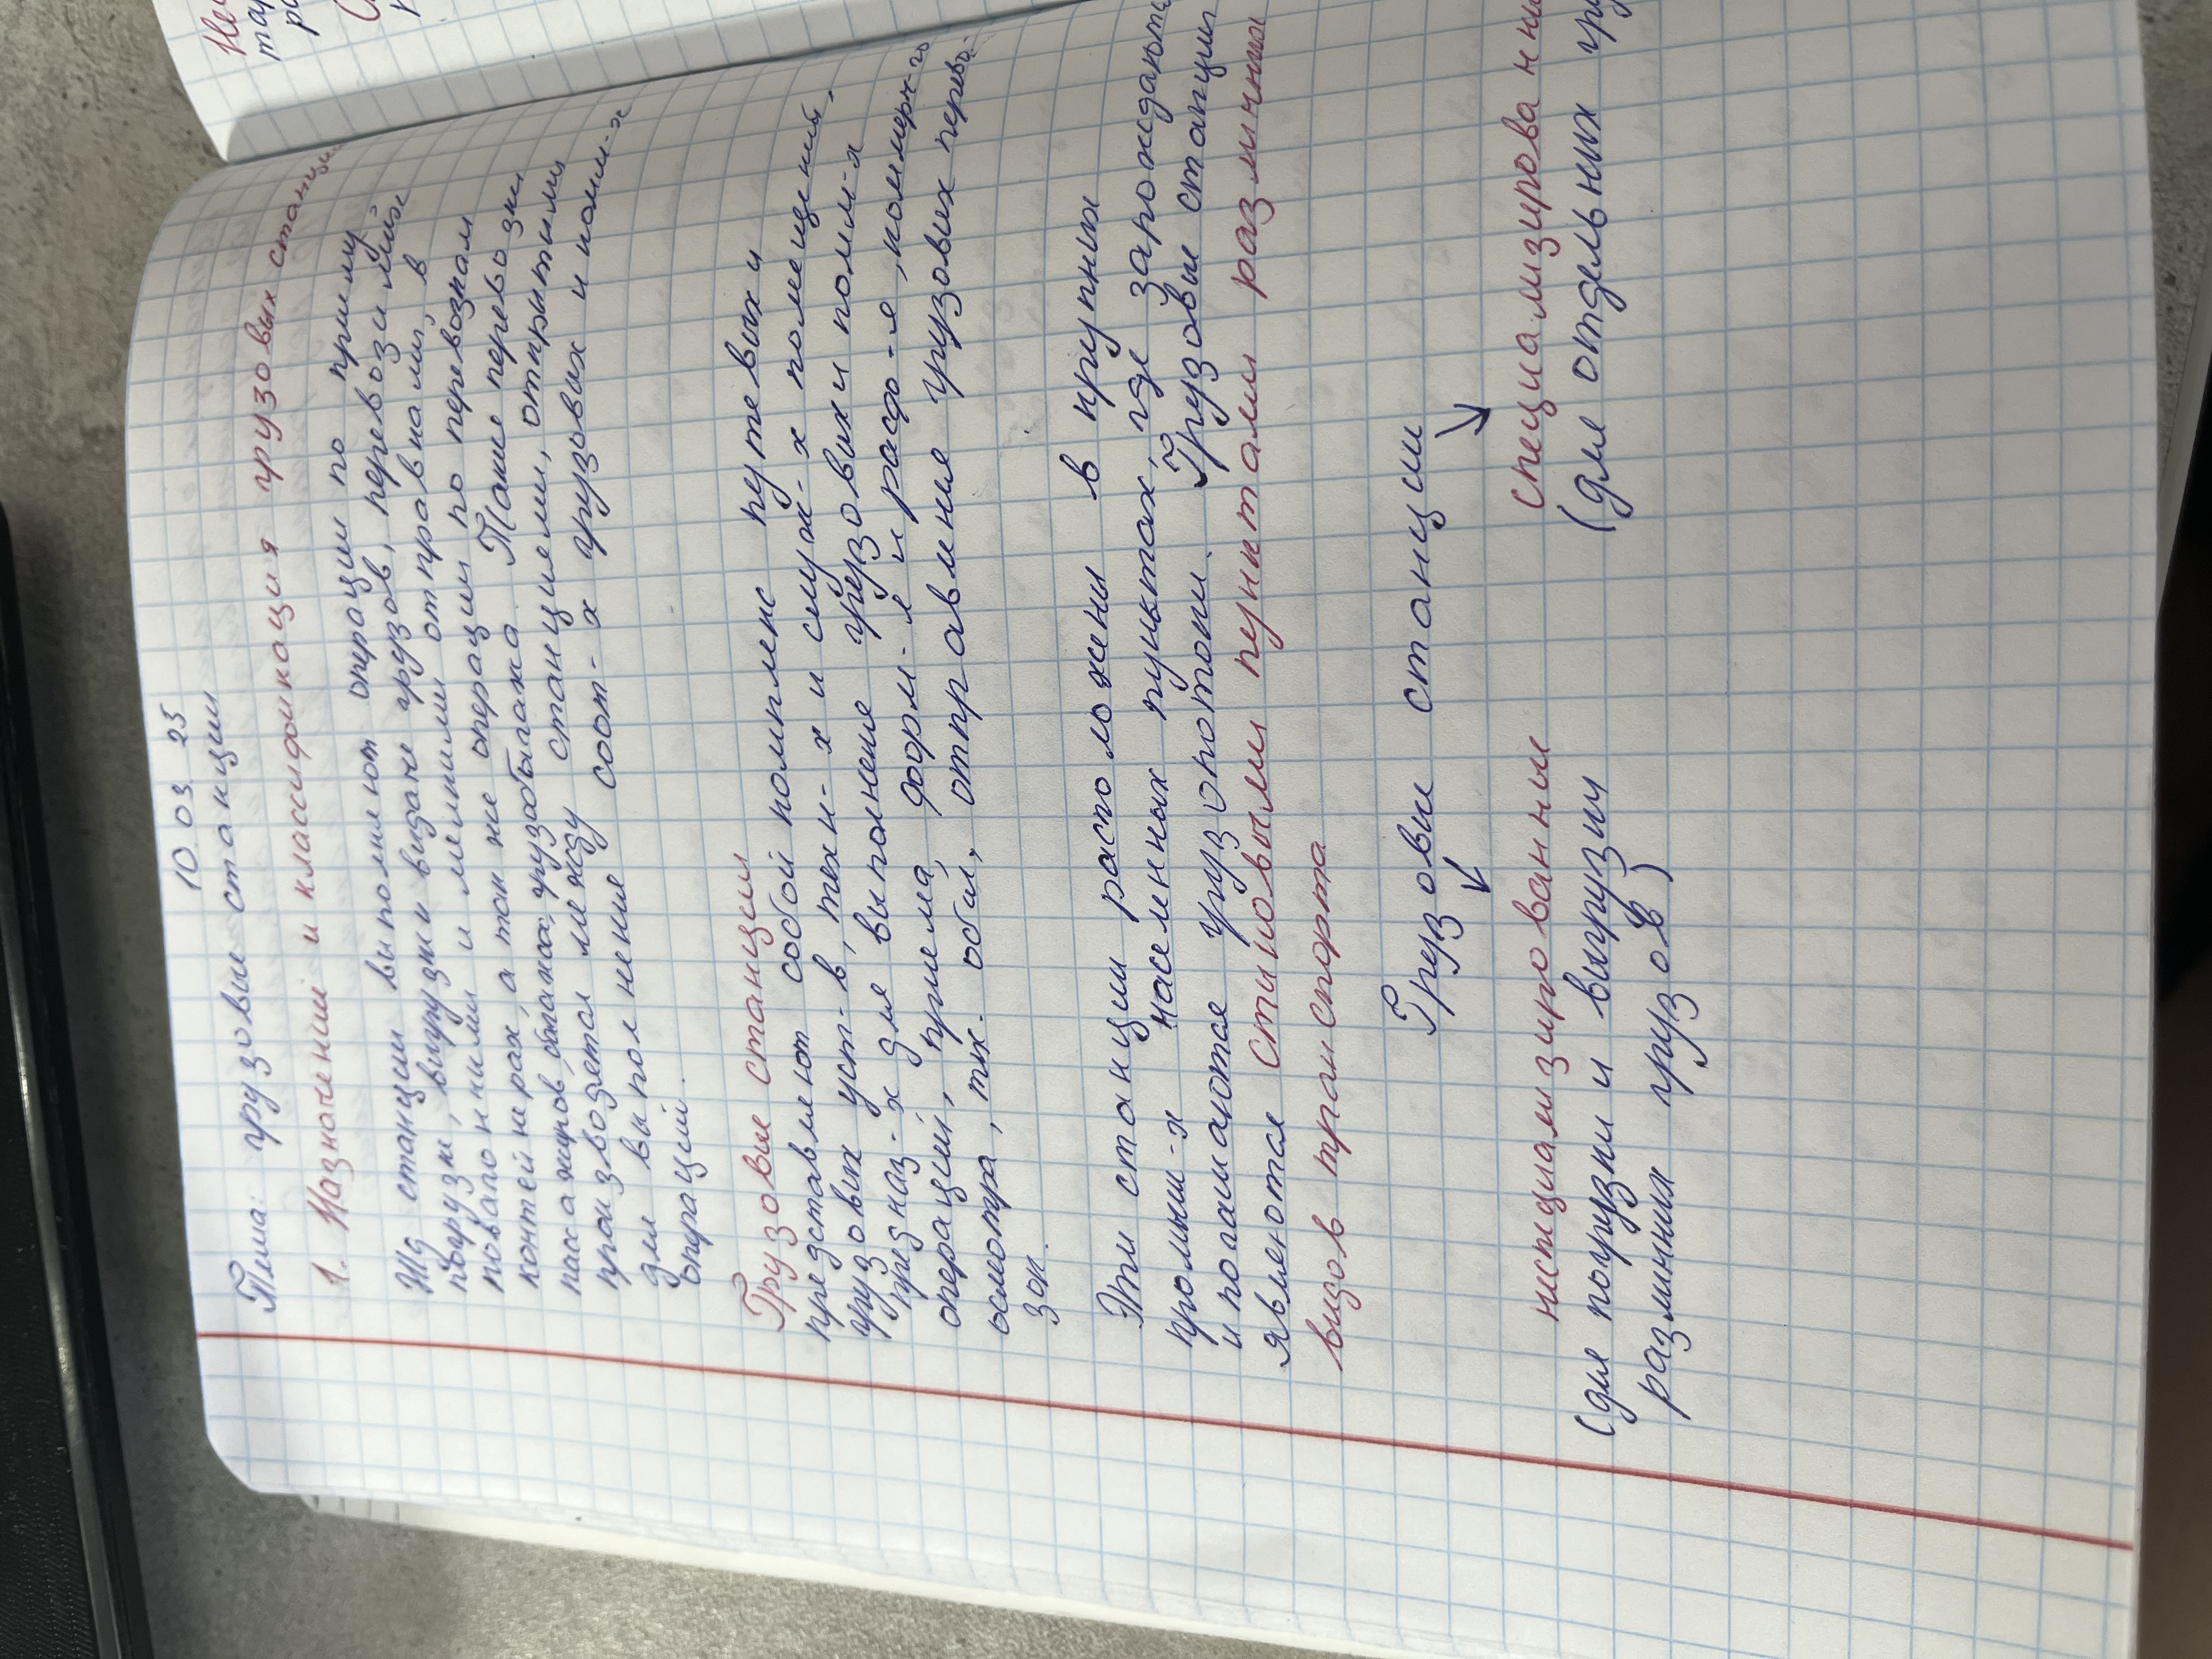 10.03.25
Тема: грузовые станции
1. Назначение и классификация грузовых станций
Жд станции выполняют операции по приему
погрузке, выгрузки и выдаче грузов, перевозимых
повагонными и мелкими отправками, в
контейнерах, а так же операции по перевозкам
пассажиров, багажа, грузобагажа. Такие перевозки
производятся между станциями, открытыми
для выполнения соот-х грузовых и комм-х
операций.
Грузовые станции
представляют собой комплекс путевых и
грузовых уст-в, техн-х и служ-х помещений,
предназ-х для выполнения грузовых и комм-х
операций, приема, форм-я и расф-я, коммерч-го
осмотра, тех. обсл, отправление грузовых перево-
зок.
Эти станции расположены в крупных
промыш-х населенных пунктах, где зарождаются
и погашаются грузопотоки. Грузовые станции
являются стыковыми пунктами различных
видов транспорта
Грузовые станции
неспециализированные специализирован
(для погрузки и выгрузки (для отдельных гру
различных грузов)